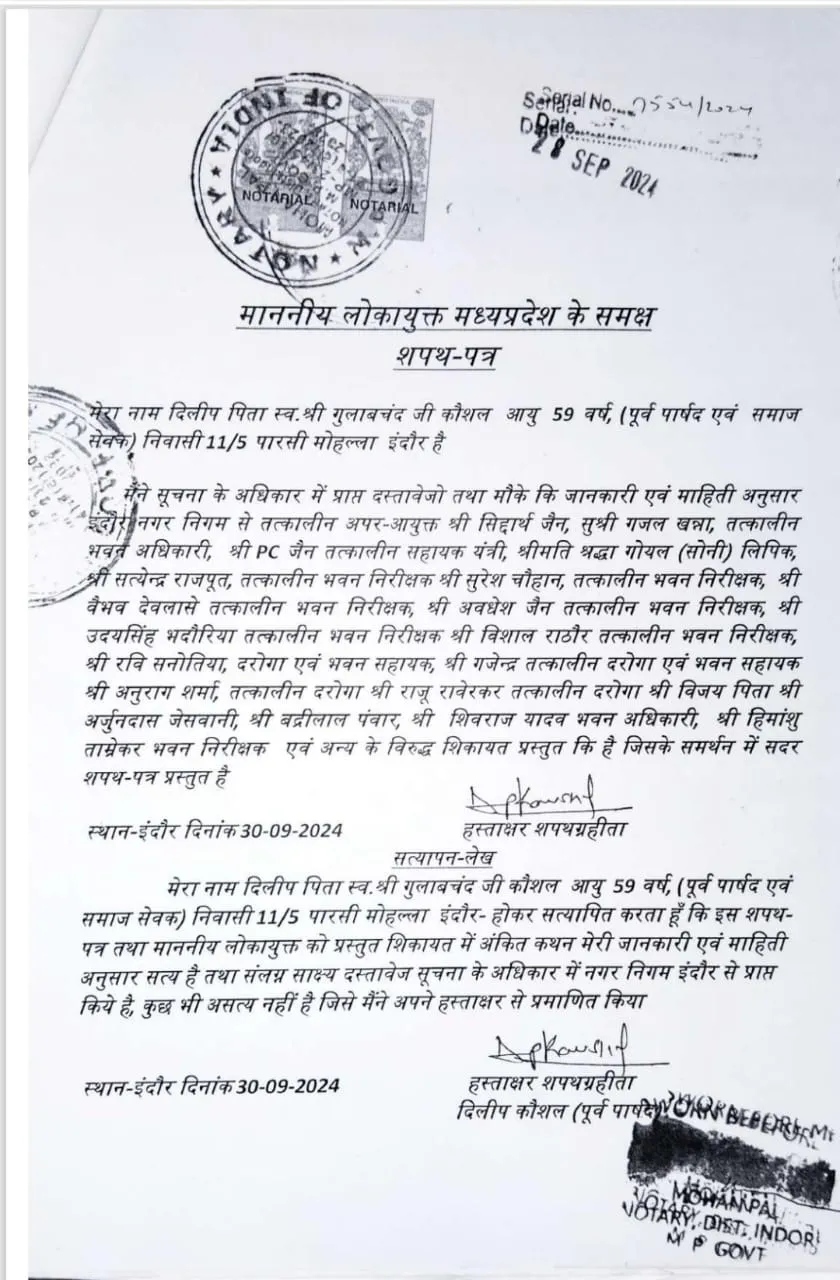 NOTARY ★ GOVT. OF INDIA ★
NOTARIAL NOTARIAL
Serial No.... /2024
Date
28 SEP 2024
माननीय लोकायुक्त मध्यप्रदेश के समक्ष
शपथ-पत्र
मेरा नाम दिलीप पिता स्व.श्री गुलाबचंद जी कौशल आयु 59 वर्ष, (पूर्व पार्षद एवं समाज
सेवक) निवासी 11/5 पारसी मोहल्ला इंदौर है
मैंने सूचना के अधिकार में प्राप्त दस्तावेजो तथा मौके कि जानकारी एवं माहिती अनुसार
इंदौर नगर निगम से तत्कालीन अपर-आयुक्त श्री सिद्दार्थ जैन, सुश्री गजल खन्ना, तत्कालीन
भवन अधिकारी, श्री PC जैन तत्कालीन सहायक यंत्री, श्रीमति श्रद्धा गोयल (सोनी) लिपिक,
श्री सत्येन्द्र राजपूत, तत्कालीन भवन निरीक्षक श्री सुरेश चौहान, तत्कालीन भवन निरीक्षक, श्री
वैभव देवलासे तत्कालीन भवन निरीक्षक, श्री अवधेश जैन तत्कालीन भवन निरीक्षक, श्री
उदयसिंह भदौरिया तत्कालीन भवन निरीक्षक श्री विशाल राठौर तत्कालीन भवन निरीक्षक,
श्री रवि सनोतिया, दरोगा एवं भवन सहायक, श्री गजेन्द्र तत्कालीन दरोगा एवं भवन सहायक
श्री अनुराग शर्मा, तत्कालीन दरोगा श्री राजू रावेरकर तत्कालीन दरोगा श्री विजय पिता श्री
अर्जुनदास जेसवानी, श्री बद्रीलाल पंवार, श्री शिवराज यादव भवन अधिकारी, श्री हिमांशु
ताम्रेकर भवन निरीक्षक एवं अन्य के विरुद्ध शिकायत प्रस्तुत कि है जिसके समर्थन में सदर
शपथ-पत्र प्रस्तुत है
स्थान-इंदौर दिनांक 30-09-2024 हस्ताक्षर शपथग्रहीता
सत्यापन-लेख
मेरा नाम दिलीप पिता स्व.श्री गुलाबचंद जी कौशल आयु 59 वर्ष, (पूर्व पार्षद एवं
समाज सेवक) निवासी 11/5 पारसी मोहल्ला इंदौर- होकर सत्यापित करता हूँ कि इस शपथ-
पत्र तथा माननीय लोकायुक्त को प्रस्तुत शिकायत में अंकित कथन मेरी जानकारी एवं माहिती
अनुसार सत्य है तथा संलग्न साक्ष्य दस्तावेज सूचना के अधिकार में नगर निगम इंदौर से प्राप्त
किये है, कुछ भी असत्य नहीं है जिसे मैंने अपने हस्ताक्षर से प्रमाणित किया
स्थान-इंदौर दिनांक 30-09-2024 हस्ताक्षर शपथग्रहीता
दिलीप कौशल (पूर्व पार्षद)
SWORN BEFORE ME
MOHAN PAL
NOTARY, DIST. INDORE
M P GOVT